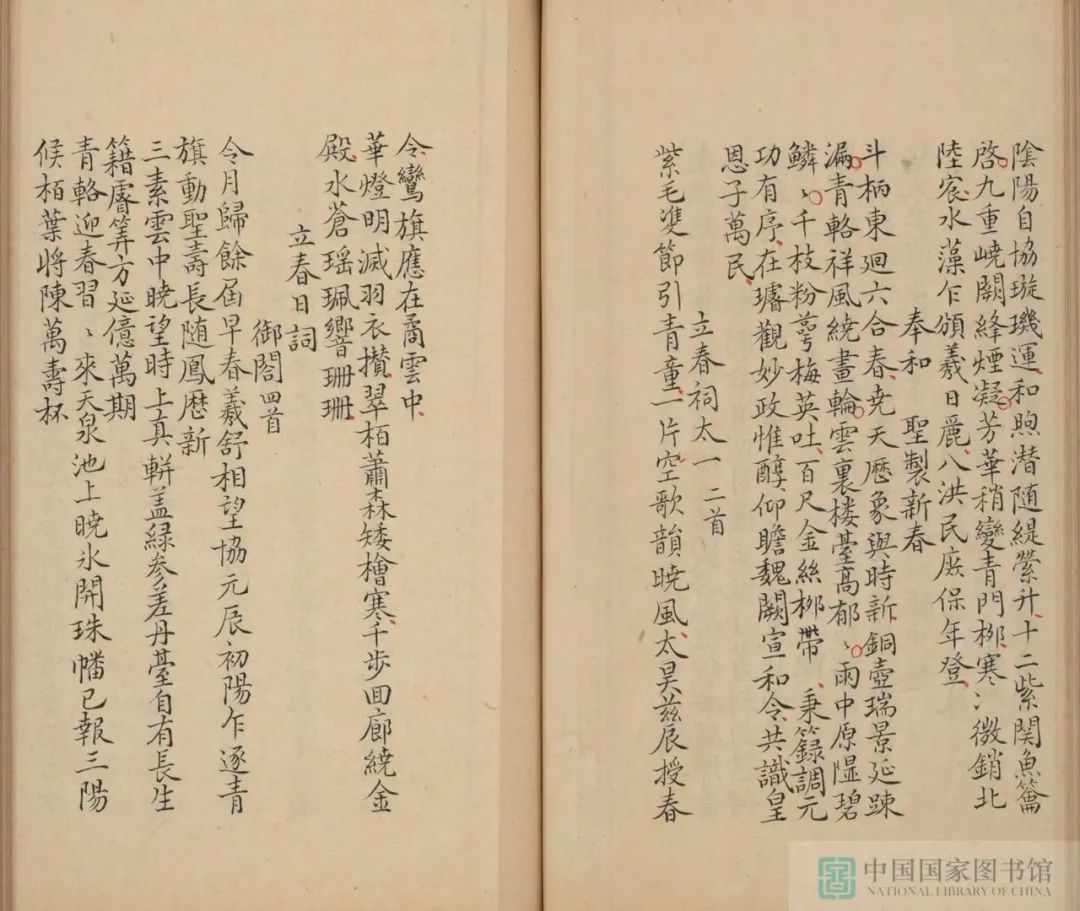 陰陽自協璇璣運和煦潜随緹縈升十二紫関魚籥
啓九重嶢闕絳煙凝芳華稍變青門栁寒冫微銷北
陸冡水藻乍頒羲日麗八洪民庶保年登
奉和　聖製新春
斗柄東廻六合春尭天歷象與時新銅壺瑞景延踈
漏青輅祥風繞畫輪雲裏楼臺髙郁〻雨中原隰碧
鱗〻千枝粉蕚梅英吐百尺金絲栁帶　秉籙調元
功有序在璿觀妙政惟醇仰瞻魏闕宣和令共識皇
恩子萬民
立春祠太一 二首
紫毛㕠節引青童一片空歌韻曉風太昊兹辰授春
令鸞旗應在矞雲中
華燈明滅羽衣攅翠栢蕭森矮檜寒千歩囬廊繞金
殿水蒼瑶珮響珊珊
立春日詞
御閤四首
令月歸餘届早春羲舒相望協元辰初陽乍逐青
旗動聖壽長随鳳歴新
三素雲中曉望時上真輧盖緑参差丹臺自有長生
籍睿筭方延億萬期
青輅迎春習〻來天泉池上曉氷開珠幡已報三陽
候栢葉将陳萬壽杯
中国国家图书馆
NATIONAL LIBRARY OF CHINA